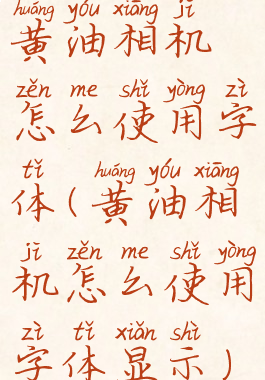 huáng yóu xiāng jī
黄油相机
zěn me shǐ yòng zì
怎么使用字
tǐ huáng yóu xiāng
体(黄油相
jī zěn me shǐ yòng
机怎么使用
zì tǐ xiǎn shì
字体显示)